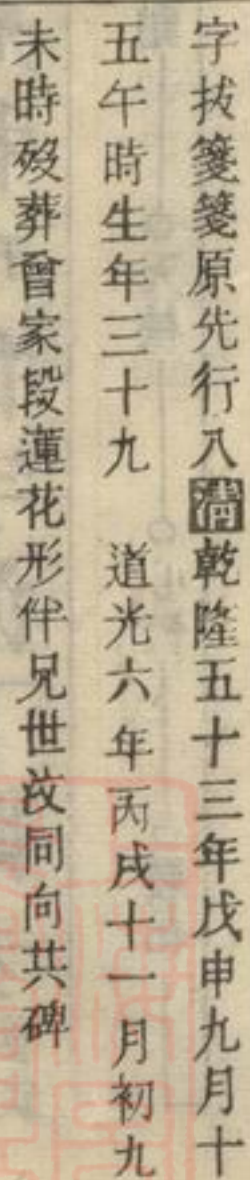 字拔箋箋原先行八清乾隆五十三年戊申九月十
五午時生年三十九　道光六年丙戌十一月初九
未時歿葬曾家段蓮花形伴兄世汝同向共碑